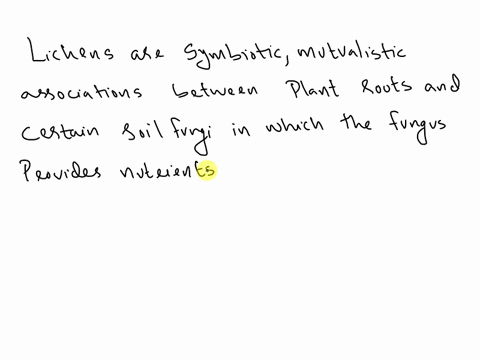 Lichens are Symbiotic, mutualistic
associations between Plant roots and
certain soil fungi in which the fungus
Provides nutrients